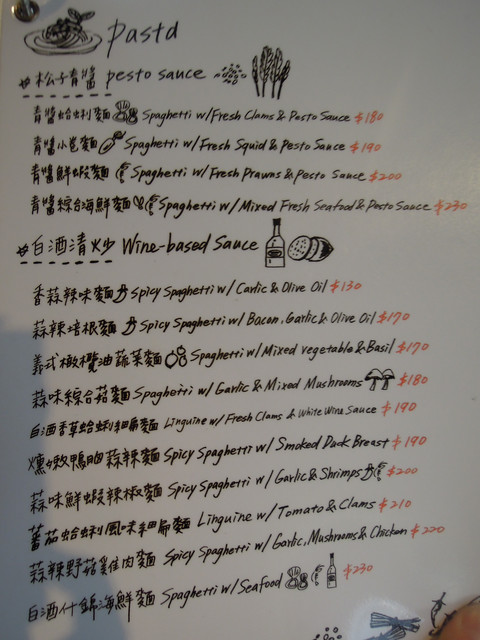 Pasta
#松子青醬 pesto sauce
青醬蛤蜊麵 Spaghetti w/Fresh Clams & Pesto Sauce $180
青醬小卷麵 Spaghetti w/Fresh Squid & Pesto Sauce $190
青醬鮮蝦麵 Spaghetti w/Fresh Prawns & Pesto Sauce $200
青醬綜合海鮮麵 Spaghetti w/Mixed Fresh Seafood & Pesto Sauce $230
#白酒清炒 Wine-based Sauce
香蒜辣味麵 Spicy Spaghetti w/ Garlic & Olive Oil $130
蒜辣培根麵 Spicy Spaghetti w/ Bacon, Garlic & Olive Oil $170
義式橄欖油蔬菜麵 Spaghetti w/Mixed vegetable & Basil $170
蒜味綜合菇麵 Spaghetti w/ Garlic & Mixed Mushrooms $180
白酒香草蛤蜊細扁麵 Linguine w/Fresh Clams & White Wine Sauce $190
燻嫩鴨胸蒜辣麵 Spicy Spaghetti w/ Smoked Duck Breast $190
蒜味鮮蝦辣椒麵 Spicy Spaghetti w/ Garlic & Shrimps $200
蕃茄蛤蜊風味細扁麵 Linguine w/ Tomato & Clams $210
蒜辣野菇雞肉麵 Spicy Spaghetti w/ Garlic, Mushrooms & Chicken $220
白酒什錦海鮮麵 Spaghetti w/ Seafood $230